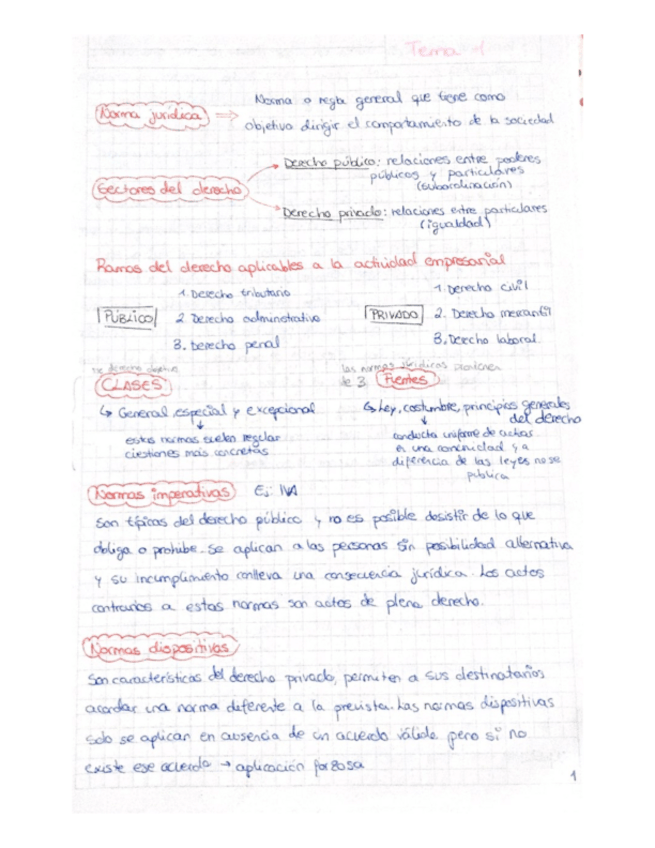 Tema 1
Norma jurídica ⇒ Norma o regla general que tiene como
objetivo dirigir el comportamiento de la sociedad
Sectores del derecho
Derecho público: relaciones entre poderes
públicos y particulares
(subordinación)
Derecho privado: relaciones entre particulares
(igualdad)
Ramas del derecho aplicables a la actividad empresarial
PÚBLICO
1. Derecho tributario
2. Derecho administrativo
3. Derecho penal
PRIVADO
1. Derecho civil
2. Derecho mercantil
3. Derecho laboral
de derecho objetivo
CLASES
↳ General, especial y excepcional
↓
estas normas suelen regular
cuestiones más concretas
las normas jurídicas provienen
de 3 Fuentes
↳ Ley, costumbre, principios generales
del derecho
↓
conducta uniforme de
en una comunidad y a
diferencia de las leyes no se
publica
Normas imperativas Ej: IVA
Son típicas del derecho público y no es posible desistir de lo que
obliga o prohíbe. Se aplican a las personas sin posibilidad alternativa
y su incumplimiento conlleva una consecuencia jurídica. Los actos
contrarios a estas normas son actos de pleno derecho.
Normas dispositivas
Son características del derecho privado, permiten a sus destinatarios
acordar una norma diferente a la prevista. Las normas dispositivas
solo se aplican en ausencia de un acuerdo válido pero si no
existe ese acuerdo → aplicación forzosa
1